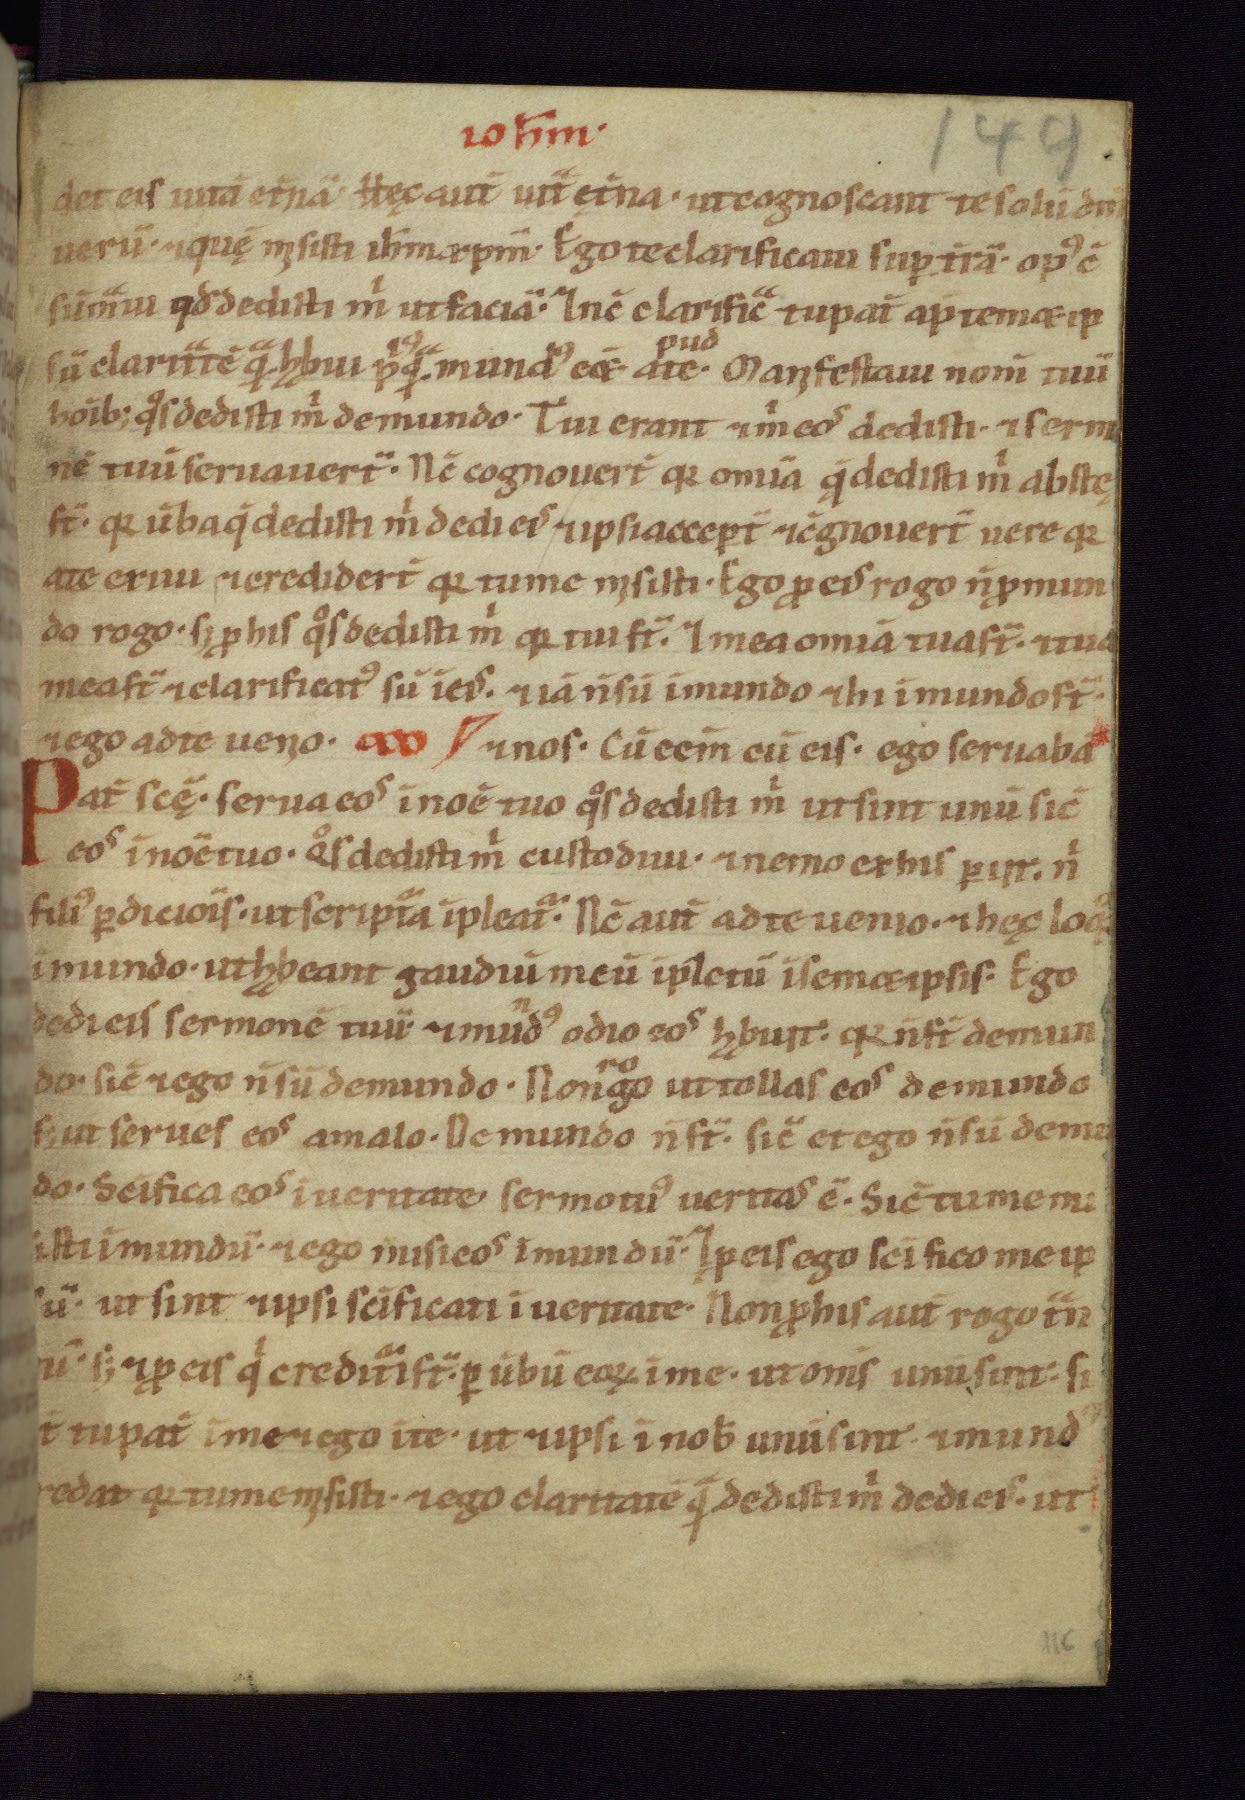 ioħm·
149
det eis uitā etnā· Hęc aut̄ uit̄ ętna· ut cognoscant te solū dm̄
uerū· ⁊ quę m̄sisti ih̄m xp̄m· Ego te clarificaui sup t̄rā· op⁹ c̄
sūmaui qd̄ dedisti m̄ ut faciā· ⁊ nc̄ clarific̄ tu pat̄ ap̄ temæ ip
sū claritatē quā ħbui p̄⁹quā mund⁹ eēt apud te· Manifestaui nom̄ tuū
hoīb; q̊s dedisti m̄ de mundo· Tui erant ⁊ m̄ eos dedisti· ⁊ sermo
nē tuū seruauert̄· Nc̄ cognouert̄ qꝛ omīa q̄ dedisti m̄ abs tę
st̄· qꝛ ūba q̄ dedisti m̄ dedi eis ⁊ ipsi accept̄ ⁊ cḡnouert̄ uere qꝛ
a te exiui ⁊ crediđert̄ qꝛ tu me m̄sisti· Ego ꝓ eis rogo n̄ ꝓ mun
do rogo· sꝫ ꝓ his q̊s dedisti m̄ qꝛ tui st̄· ⁊ mea omīa tua st̄· ⁊ tua
mea st̄ ⁊ clarificat⁹ sū ī eis· ⁊ iā n̄ sū ī mundo ⁊ hi ī mundo st̄·
⁊ ego ad te uenio· ⁊ nos· Cū eēm cū eis· ego seruabā
Pat̄ scę· serua eos ī noē tuo q̊s dedisti m̄ ut sint unū sic̄
eos ī noē tuo· Q̊s dedisti m̄ custodiui· ⁊ nemo ex his ꝑiit· n̄
fili⁹ ꝑdicioīs· ut scriptᵃa īpleat̄· Nc̄ aut̄ ad te uenio· ⁊ hęc loq̊ʳ
ī mundo· ut ħbeant gaudiū meū īpletū ī semæ ipsis· Ego
dedi eis sermonē tuū· ⁊ mūd⁹ odio eos ħbuit· qꝛ n̄ st̄ de mun
do· sic̄ ⁊ ego n̄ sū de mundo· Non rogo ut tollas eos de mundo
sꝫ ut serues eos a malo· De mundo n̄ st̄· sic̄ et ego n̄ sū de mu
do· Scīfica eos ī ueritate· sermo tu⁹ ueritas ē· Sic̄ tu me mi
sisti ī mundū· ⁊ ego misi eos ī mundū· ⁊ ꝓ eis ego scīfico me ip
sū· ut sint ⁊ ipsi scīficati ī ueritate· Non ꝓ his aut̄ rogo tn̄
tū· sꝫ ⁊ ꝓ eis q̇ credituri st̄· ꝑ ūbū eoꝝ ī me· ut om̄s unū sint· si
t̄ tu pat̄ ī me ⁊ ego ī te· ut ⁊ ipsi ī nob̄ unū sint· ⁊ mund⁹
redat qꝛ tu me m̄sisti· ⁊ ego claritatē quā dedisti m̄ dedi eis· ut
116